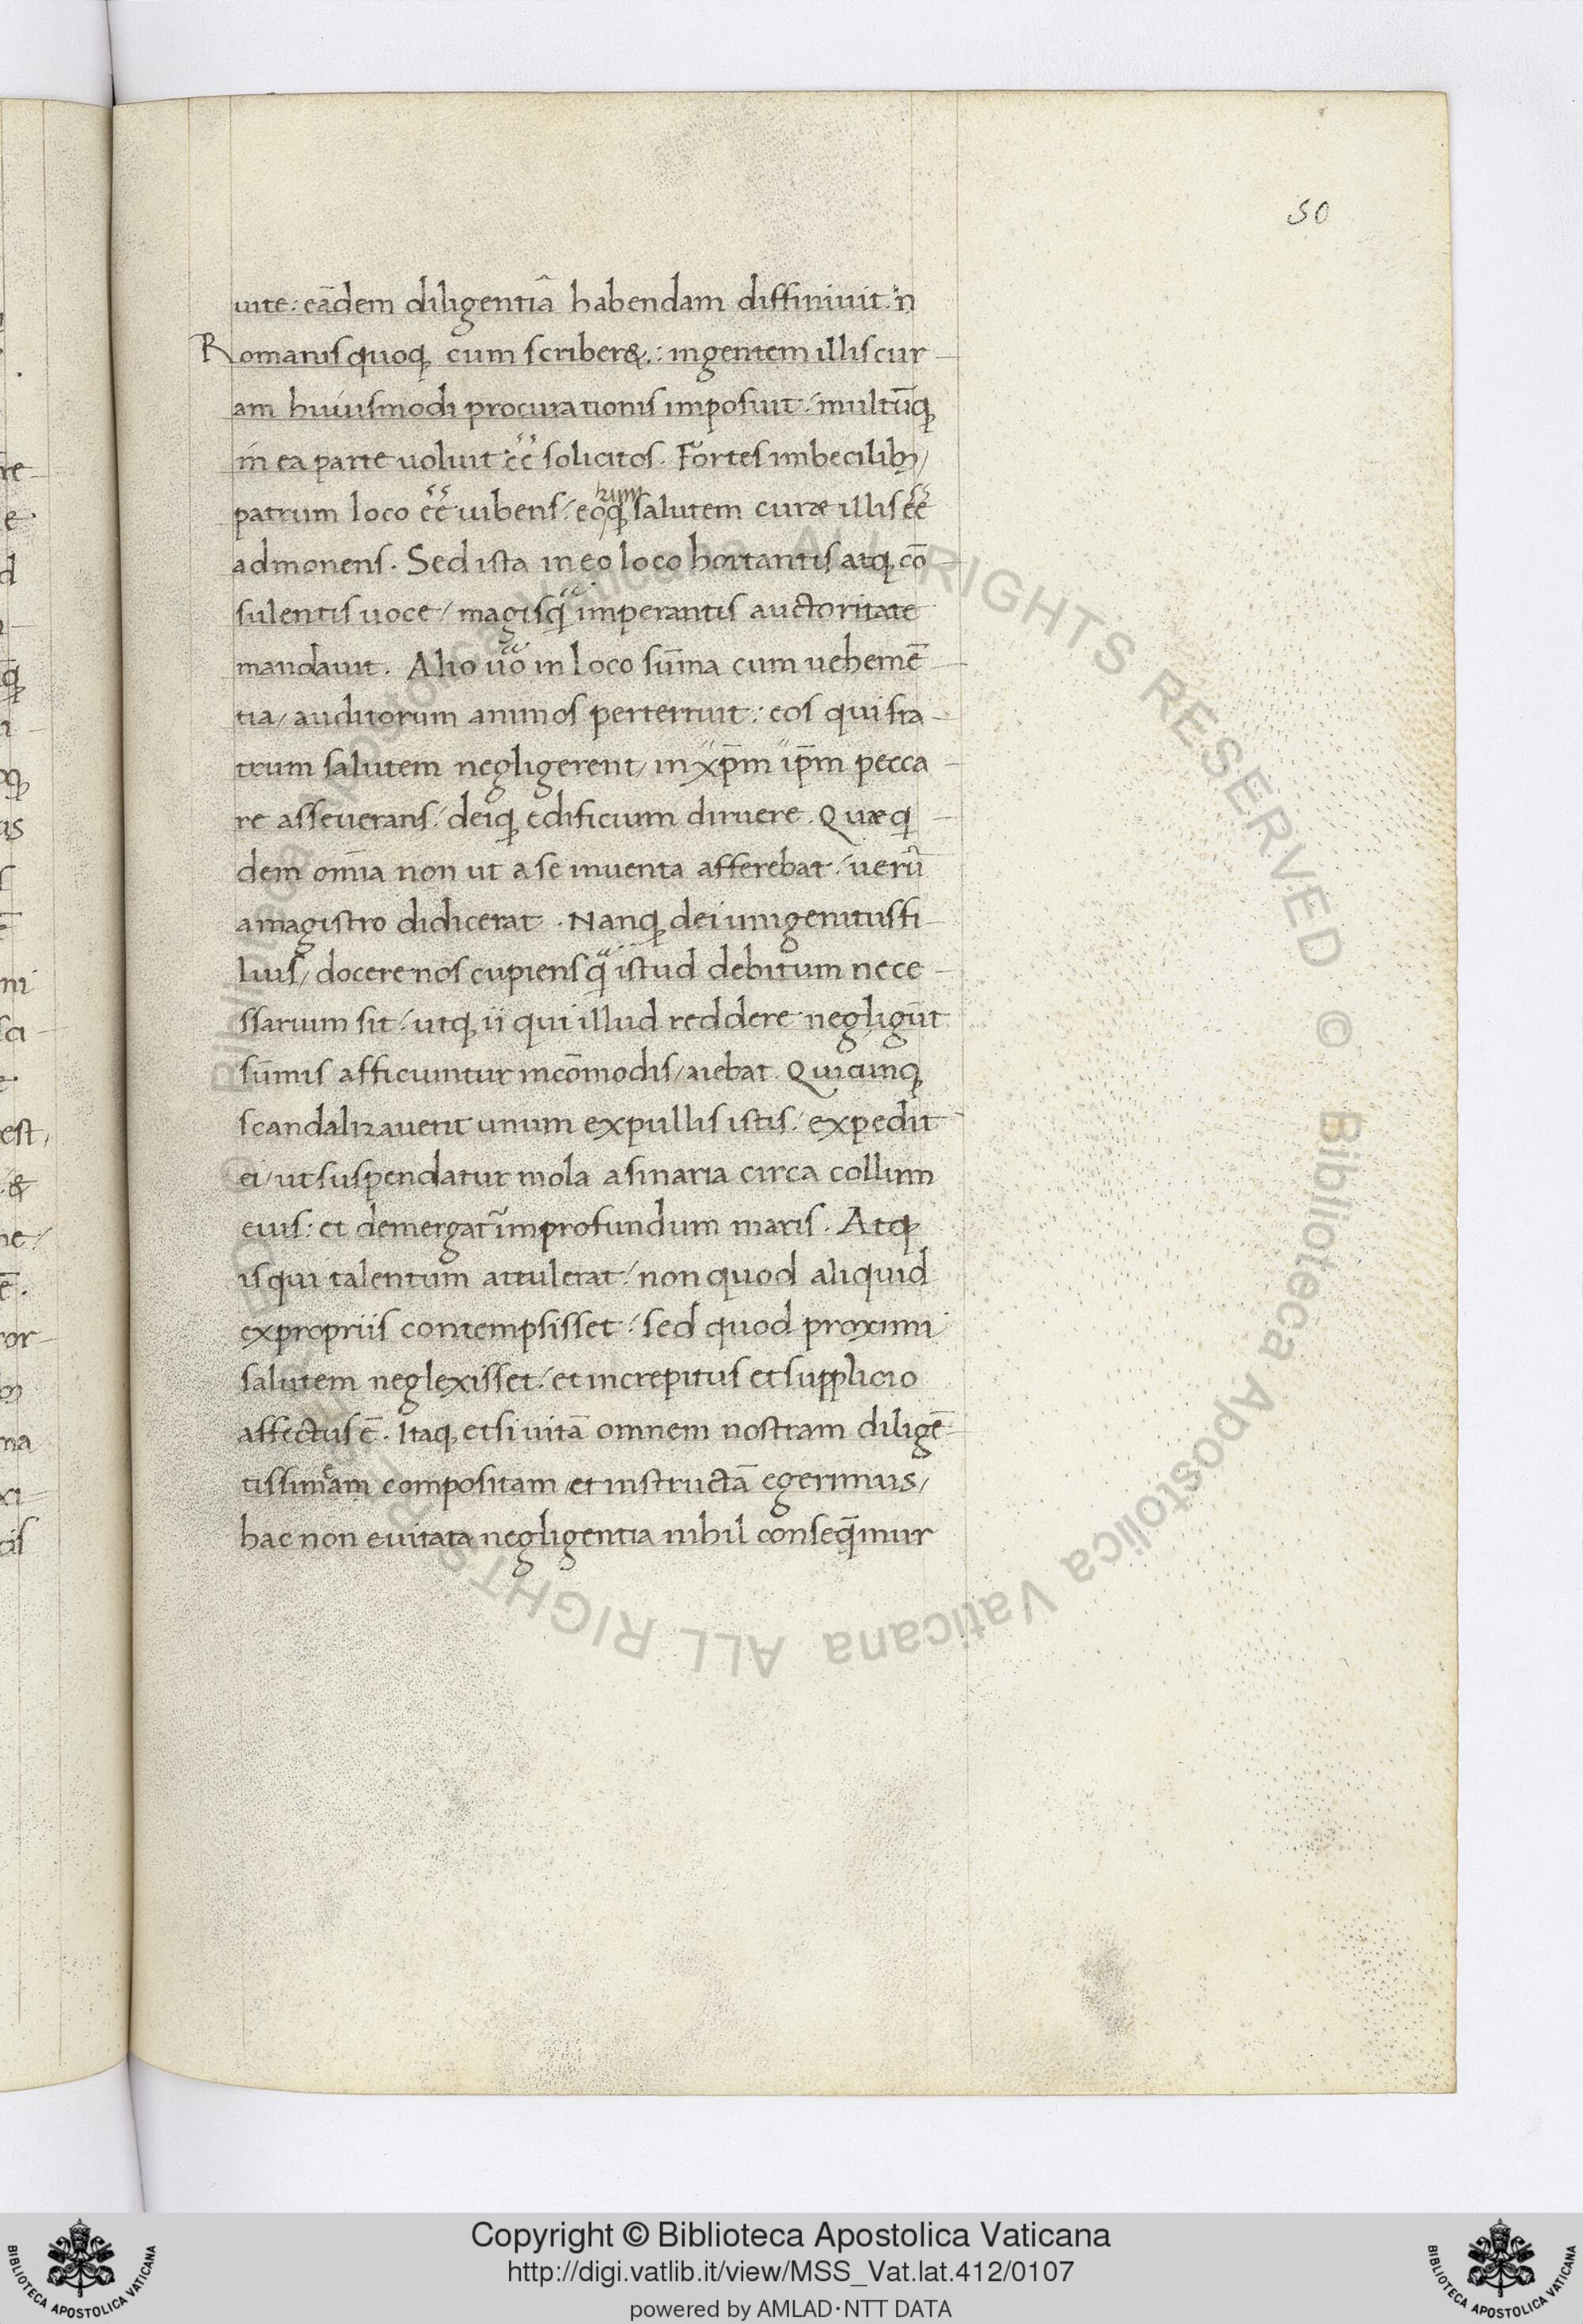 50
uite: eādem diligentiā habendam diffiniuit. n̄
Romanis quoq; cum scriber&.: ingentem illis cur
am huiusmodi procurationis imposuit: multūq;
in ea parte uoluit eē solicitos. Fortes imbecilib;
patrum loco eē uibens: eoq; rum salutem curæ illis eē
admonens. Sed ista in eo loco hortantis atq; cō
sulentis uoce/ magisq̄ imperantis auctoritate
mandauit. Alio uō in loco sūma cum uehemē
tia/ auditorum animos perterruit: eos qui fra
trum salutem negligerent/ in xp̄m ip̄m pecca
re asseuerans: deiq; edificium diruere. Quæ q
dem om̄ia non ut a se inuenta afferebat: uerū
a magistro didicerat. Nanq; dei unigenitus fi
lius/ docere nos cupiens q̄ istud debitum nece
ssarium sit: utq; ii qui illud reddere negligūt
sūmis afficiuntur incōmodis/ aiebat. Quicunq;
scandalizauerit unum ex pullis istis: expedit
ei/ ut suspendatur mola asinaria circa collum
eius: et demergat̄ in profundum maris. Atq;
is qui talentum attulerat: non quod aliquid
ex propriis contempsisset: sed quod proximi
salutem neglexisset: et increpitus et supplicio
affectus ē. Itaq; etsi uitā omnem nostram diligē
tissimam compositam et instructā egerimus/
hac non euitata negligentia nihil conseq̄mur
Copyright © Biblioteca Apostolica Vaticana
http://digi.vatlib.it/view/MSS_Vat.lat.412/0107
powered by AMLAD·NTT DATA
BIBLIOTECA APOSTOLICA VATICANA
BIBLIOTECA APOSTOLICA VATICANA
© Biblioteca Apostolica Vaticana ALL RIGHTS RESERVED
© Biblioteca Apostolica Vaticana ALL RIGHTS